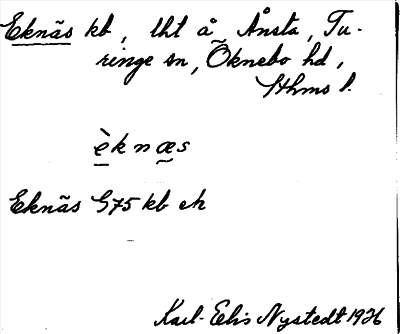 Eknäs kb, tht å Ånsta, Tu-
ringe sn, Öknebo hd,
Sthms l.
èknæs
Eknäs G75 kb ek
Karl-Elis Nystedt 1926